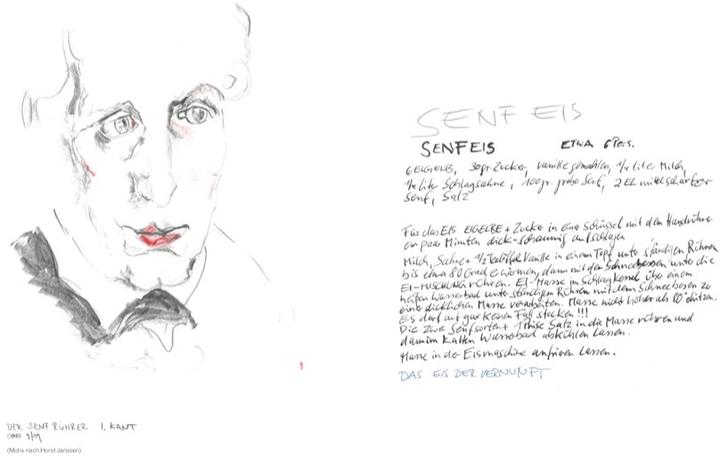 SENF EIS
SENFEIS ETWA 6 Pers.
6 EIGELB, 30 gr Zucker, Vanille gemahlen, 1/4 Liter Milch,
1/4 Liter Schlagsahne, 100 gr. grober Senf, 2 EL mittelscharfer
Senf, Salz
Für das EIS EIGELBE + Zucker in eine Schüssel mit dem Handrührer
ein paar Minuten dick-schaumig aufschlagen
Milch, Sahne + 1/2 Teelöffel Vanille in einem Topf unter ständigen Rühren
bis etwa 80 Grad erwärmen, dann mit den Schneebesen unter die
EI-MISCHUNG rühren. EI-Masse im Schlagkessel über einem
heißen Wasserbad unter ständigem Rühren mit dem Schneebesen zu
einer dicklichen Masse verarbeiten. Masse nicht höher als 80° erhitzen.
Es darf auf gar keinen Fall stocken !!!
Die zwei Senfsorten + 1 Prise Salz in die Masse rühren und
dann im kalten Wasserbad abkühlen lassen.
Masse in der Eismaschine anfrieren lassen.
DAS EIS DER VERNUNFT
DER SENFRÜHRER I. KANT
9/19
(Motiv nach Horst Janssen)